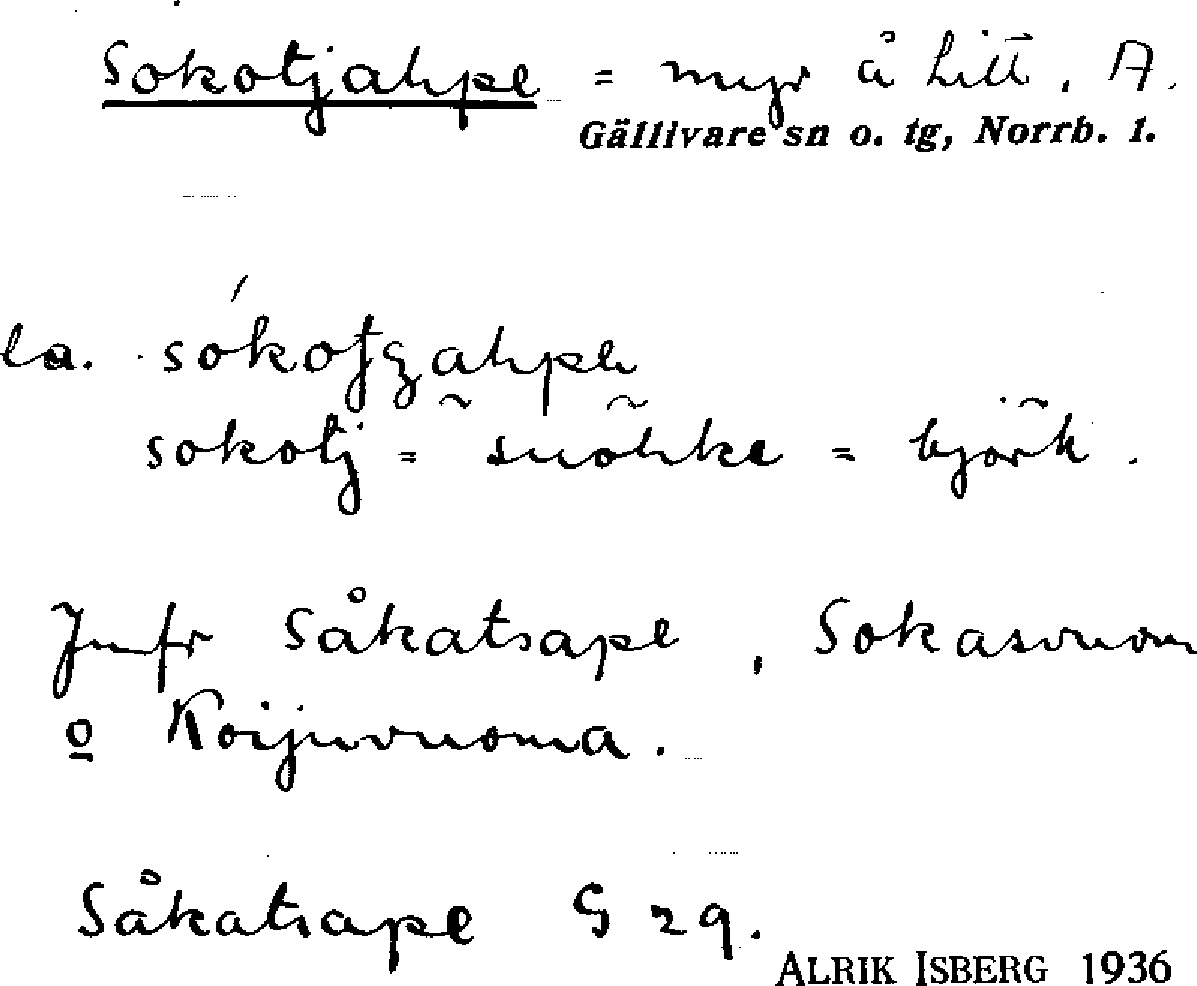 Sokotjahpe = myr å Litt. A.
Gällivare sn o. tg, Norrb. l.
la. sókotʒahpe
sokotj = suõhke = bjørk.
Jmfr Såkatsape, Sokasvuom
o Koijuvuoma.
Såkatsape G 29.
ALRIK ISBERG 1936